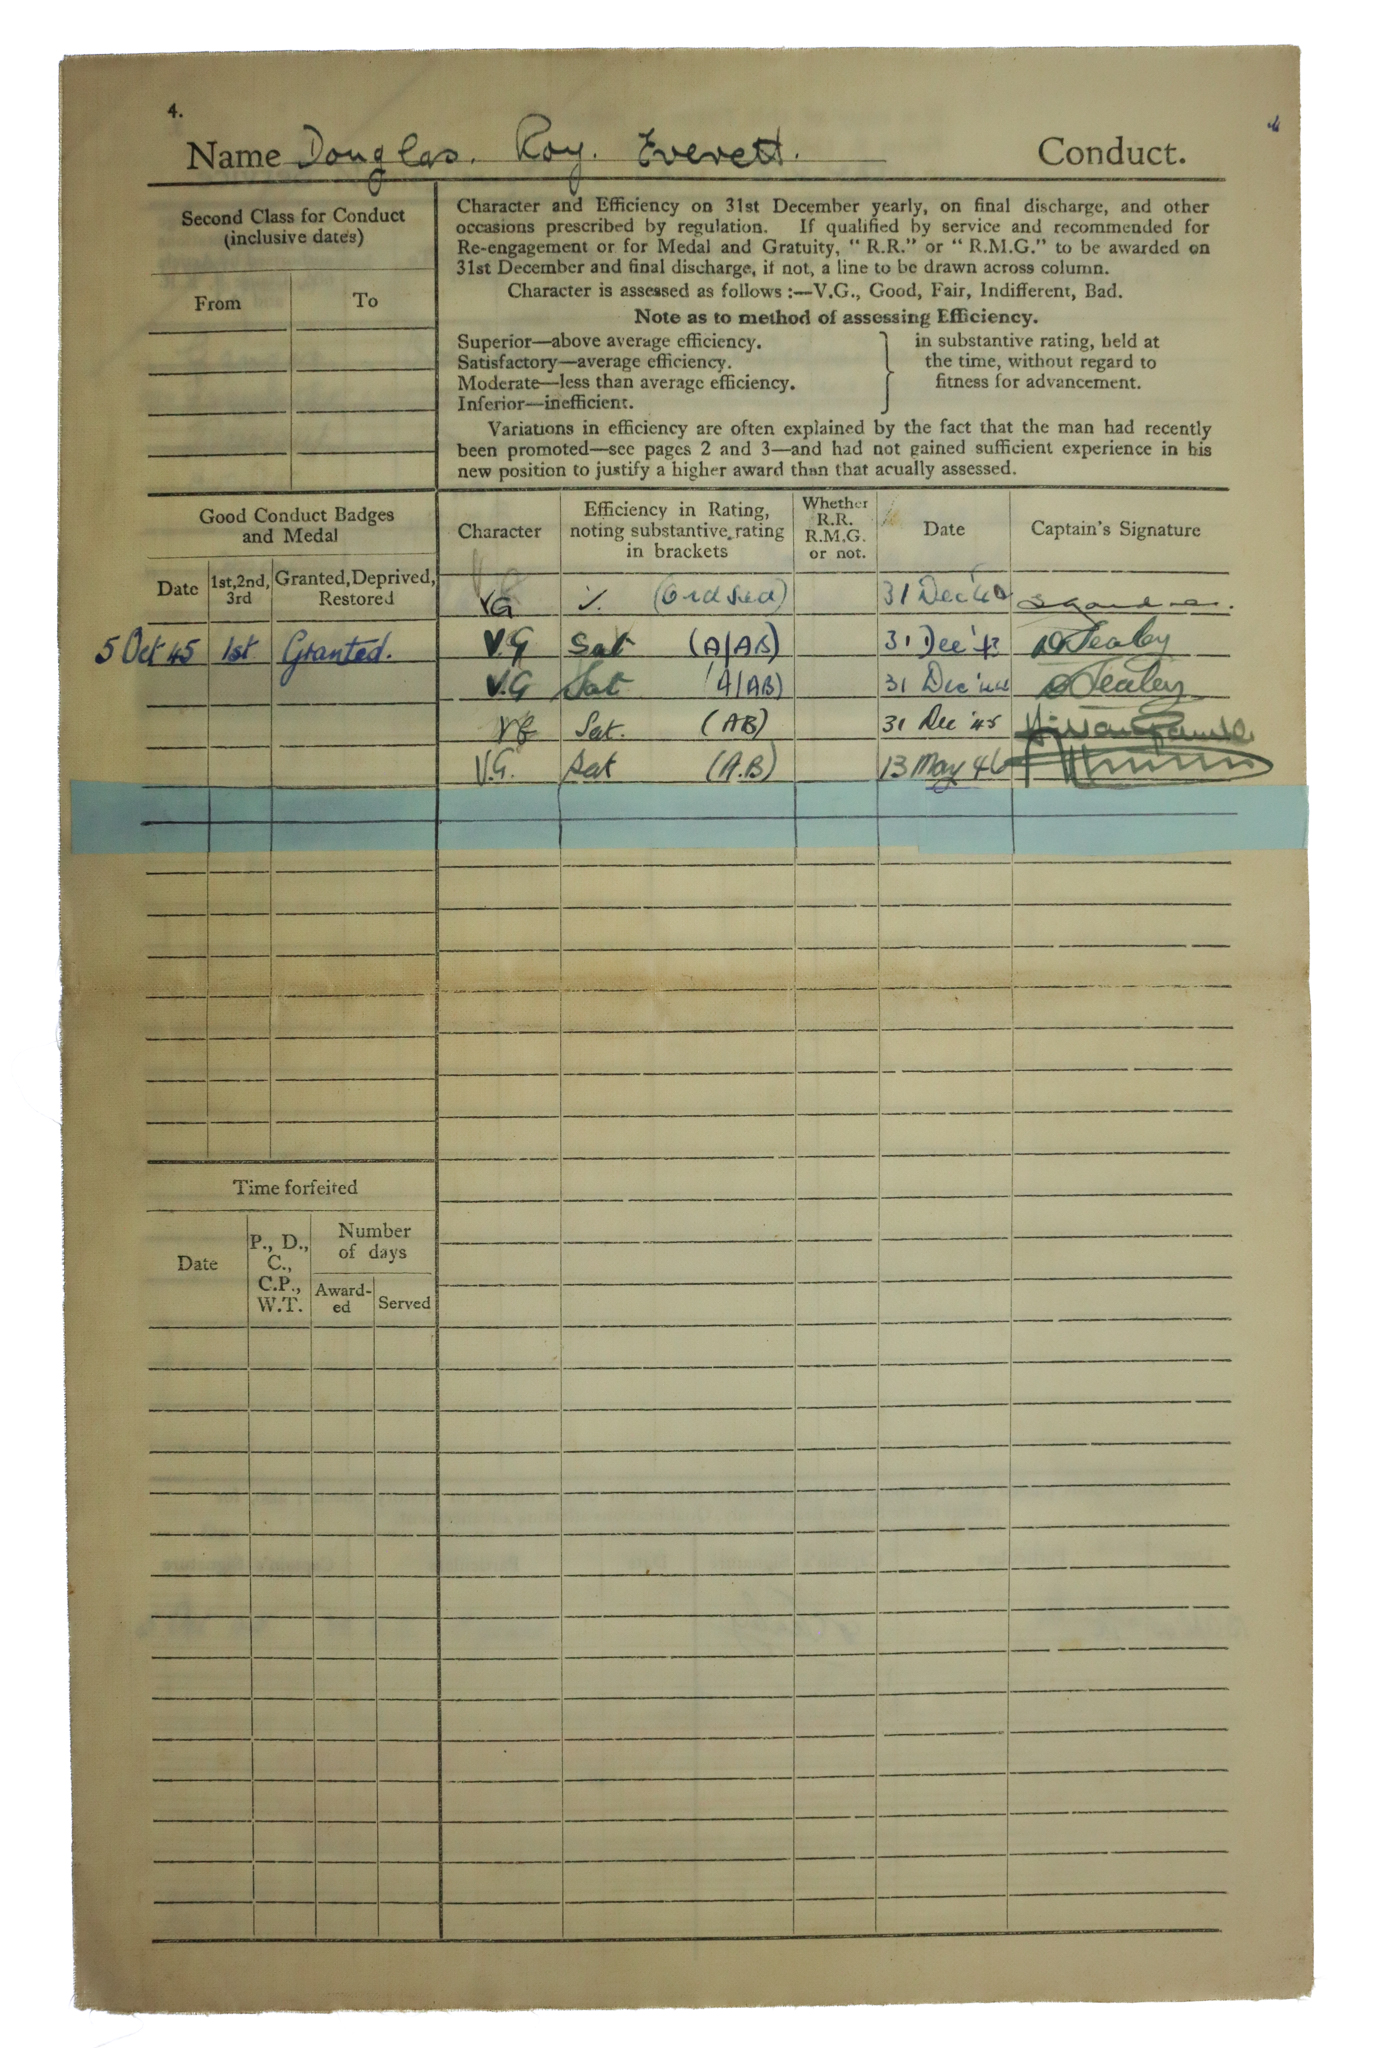 4.
Name Douglas. Roy. Everett. Conduct.
Second Class for Conduct
(inclusive dates)
From To
Character and Efficiency on 31st December yearly, on final discharge, and other
occasions prescribed by regulation. If qualified by service and recommended for
Re-engagement or for Medal and Gratuity, "R.R." or "R.M.G." to be awarded on
31st December and final discharge, if not, a line to be drawn across column.
Character is assessed as follows :—V.G., Good, Fair, Indifferent, Bad.
Note as to method of assessing Efficiency.
Superior—above average efficiency.
Satisfactory—average efficiency.
Moderate—less than average efficiency.
Inferior—inefficient.
in substantive rating, held at
the time, without regard to
fitness for advancement.
Variations in efficiency are often explained by the fact that the man had recently
been promoted—see pages 2 and 3—and had not gained sufficient experience in his
new position to justify a higher award than that acually assessed.
Good Conduct Badges
and Medal
Date
1st, 2nd,
3rd
Granted, Deprived,
Restored
5 Oct 45 1st Granted.
Character
Efficiency in Rating,
noting substantive rating
in brackets
Whether
R.R.
R.M.G.
or not.
Date
Captain's Signature
VG (Ord Sea) 31 Dec
V.G Sat (A/AB) 31 Dec
V.G Sat (A/AB) 31 Dec '44
VG Sat. (AB) 31 Dec '45
V.G. Sat (A.B) 13 May 46
Time forfeited
Date
P., D.,
C.,
C.P.,
W.T.
Number
of days
Award-
ed
Served